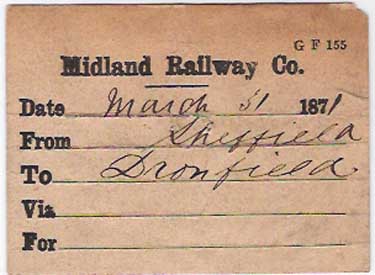 G F 155
Midland Railway Co.
Date March 31 1871
From Sheffield
To Dronfield
Via
For